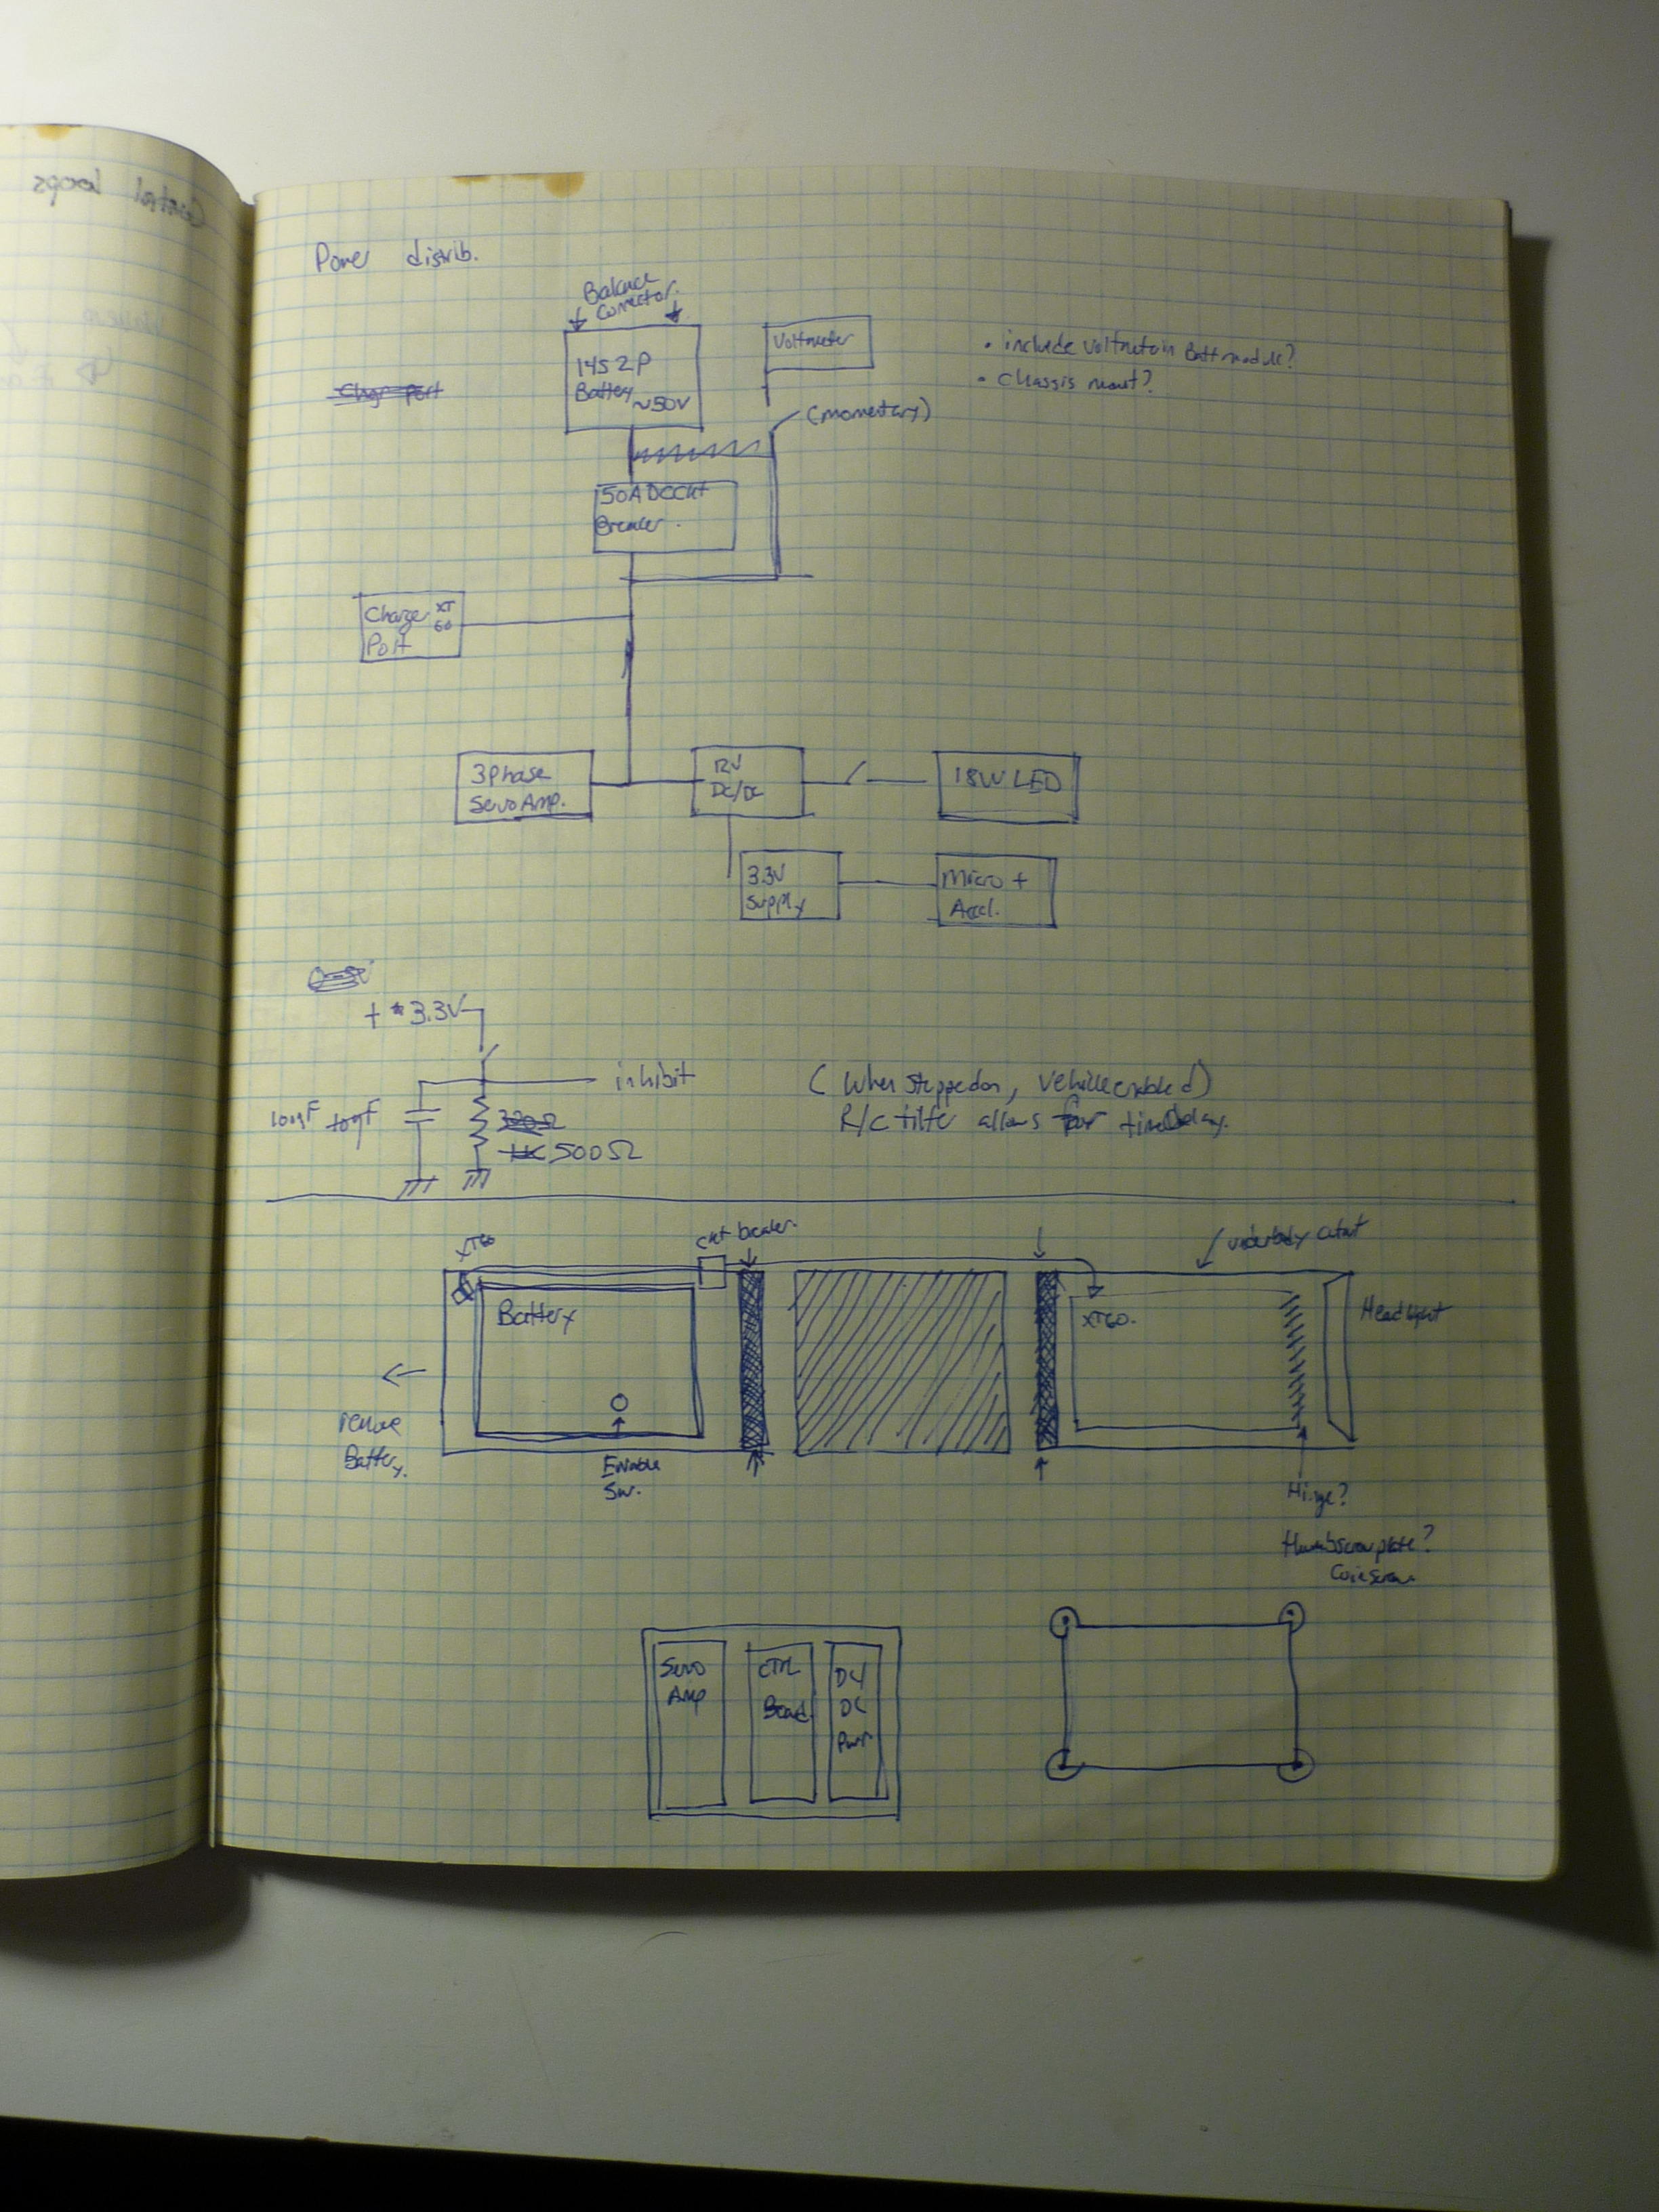 Control loops
Power distrib.
Balance
Connector.
14S 2P
Battery
~50V
Voltmeter
• include voltmeter in Batt module?
• Chassis mount?
Chgr Port
(momentary)
50A DC Ckt
Breaker.
Charge XT
Port 60
3 Phase
Servo Amp.
12V
DC/DC
18W LED
3.3V
Supply
Micro +
Accl.
+ 3.3V
inhibit
(When stepped on, vehicle enabled)
R/C filter allows for time Delay.
100µF 10µF
330Ω
1K 500Ω
XT60
Ckt breaker.
underbody cutout
Battery
XT60.
Headlight
remove
Battery.
Enable
Sw.
Hinge?
Thumbscrew plate?
Coin screw
Servo
Amp
CTRL
Board.
DC/
DC
Pwr